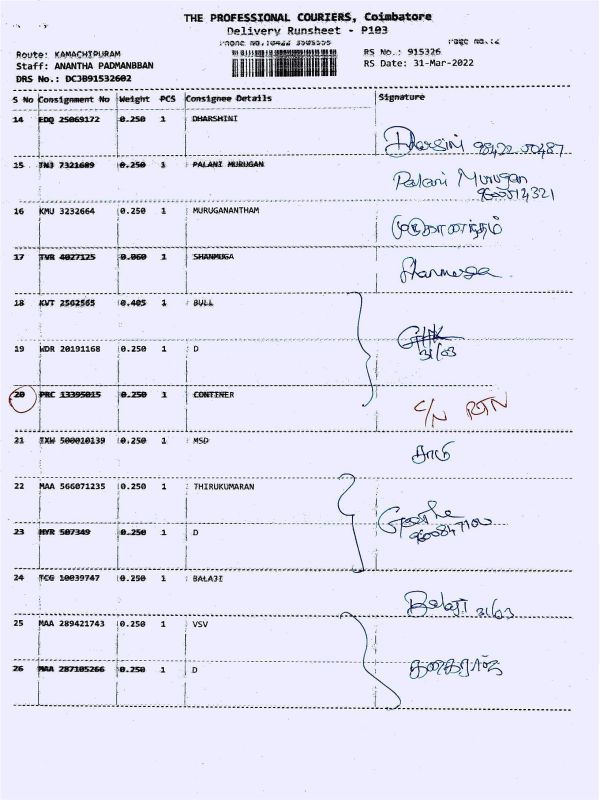 THE PROFESSIONAL COURIERS, Coimbatore
Delivery Runsheet - P103
Page No.:2
Route: KAMACHIPURAM RS No.: 915326
Staff: ANANTHA PADMANBBAN RS Date: 31-Mar-2022
DRS No.: DCJB91532602
S No Consignment No Weight PCS Consignee Details Signature
14 EDQ 25069172 0.250 1 DHARSHINI
Dharsini
15 TNJ 7321609 0.250 1 PALANI MURUGAN
Palani Murugan
16 KMU 3232664 0.250 1 MURUGANANTHAM
முருகானந்தம்
17 TVR 4027125 0.060 1 SHANMUGA
Shanmuga
18 KVT 2562565 0.405 1 BULL
31/03
19 WDR 20191168 0.250 1 D
20 PRC 13395015 0.250 1 CONTINER
C/N RTN
21 IXW 500020139 0.250 1 MSD
22 MAA 566071235 0.250 1 THIRUKUMARAN
23 HYR 507349 0.250 1 D
24 TCG 10039747 0.250 1 BALAJI
Balaji 31/03
25 MAA 289421743 0.250 1 VSV
26 MAA 287105266 0.250 1 D